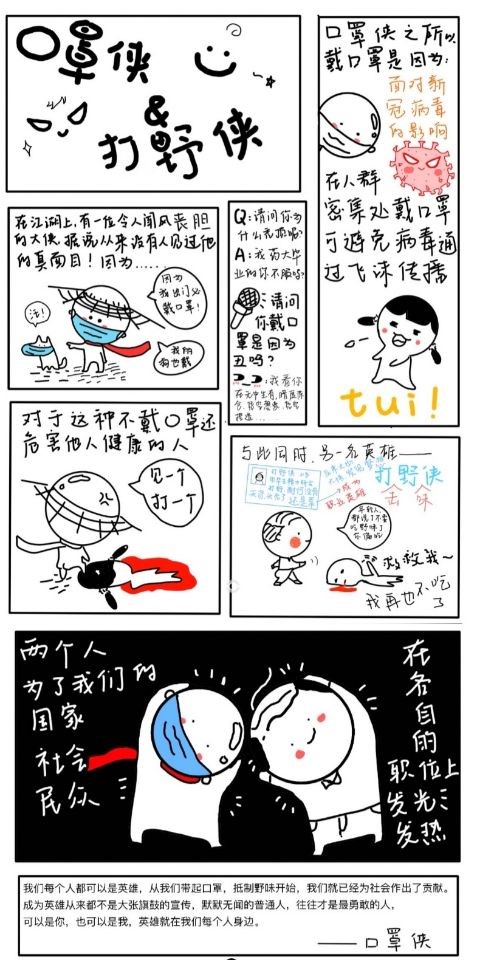 口罩侠
&
打野侠
口罩侠之所以
戴口罩是因为:
面对新
冠病毒
的影响
在人群
密集处戴口罩
可避免病毒通
过飞沫传播
tui!
在江湖上,有一位令人闻风丧胆
的大侠,据说从来没有人见过他
的真面目!因为.....
因为
我出门必
戴口罩!
汪!
我的
狗也戴
Q:请问你为
什么
A:
业的你不服吗?
:请问
你戴口
罩是因为
丑吗?
:我看你
对于这种不戴口罩还
危害他人健康的人
见一个
打一个
与此同时,另一名英雄——
打野侠
成为
职业英雄
去味
野味了
救救我~
我再也不吃
了
两个人
为了我们的
国家
社会
民众
在
各
自
的
职位上
发光
发热
我们每个人都可以是英雄,从我们带起口罩,抵制野味开始,我们就已经为社会作出了贡献。
成为英雄从来都不是大张旗鼓的宣传,默默无闻的普通人,往往才是最勇敢的人,
可以是你,也可以是我,英雄就在我们每个人身边。
——口罩侠